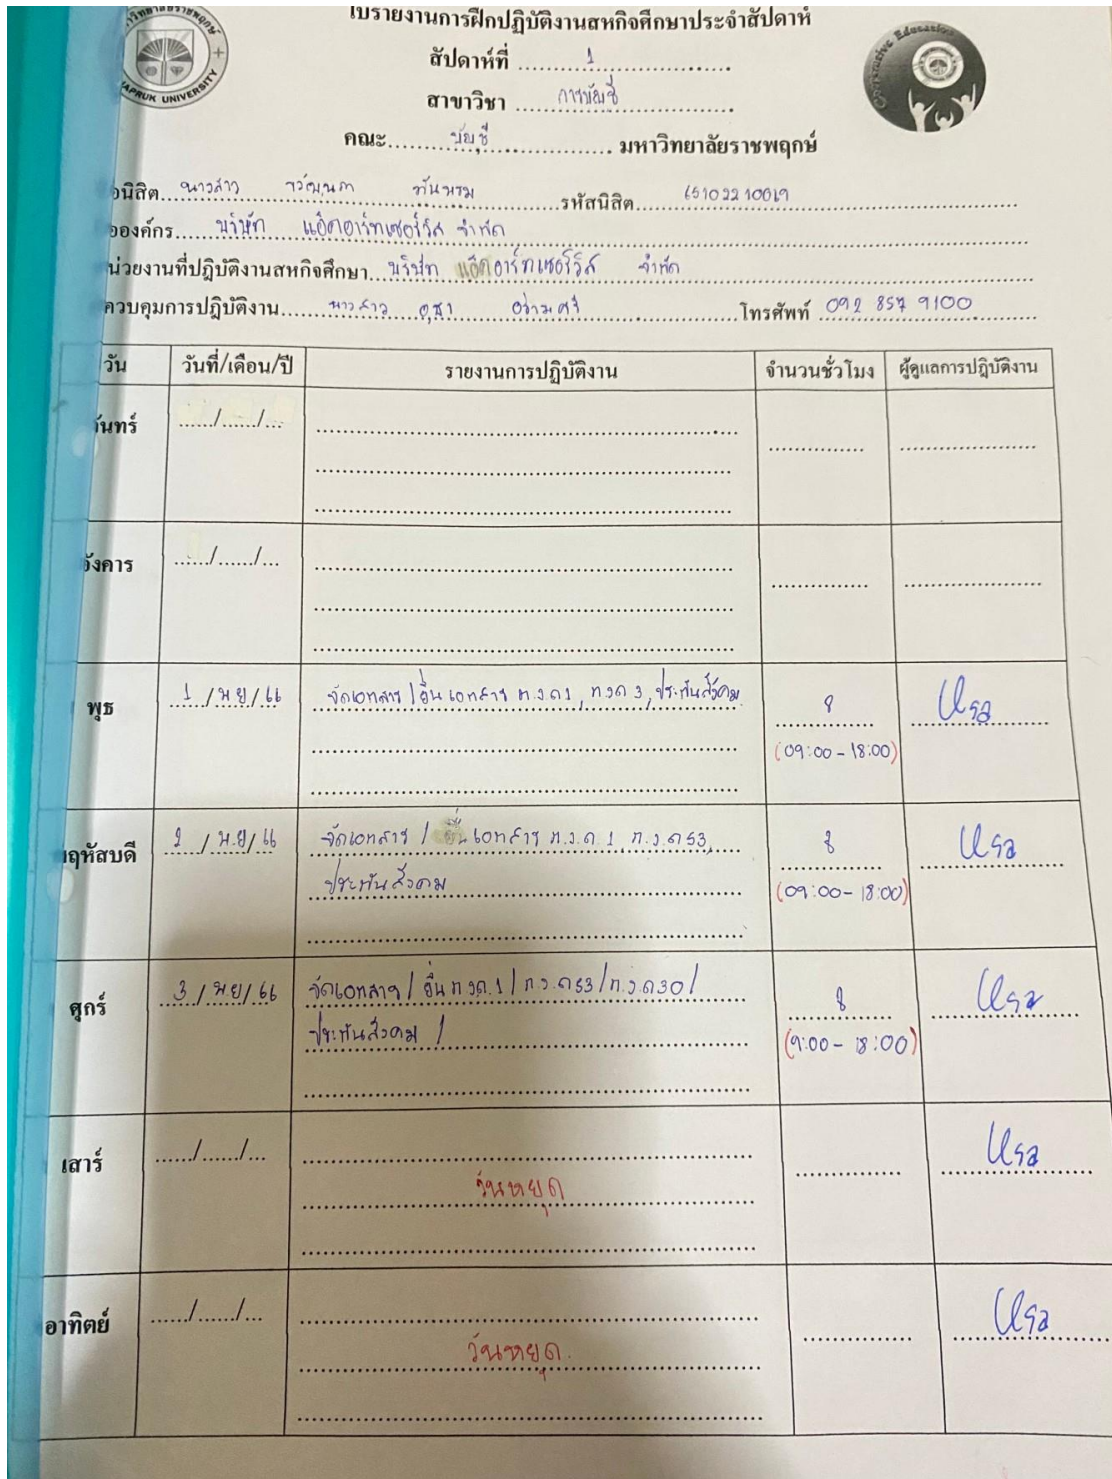 ใบรายงานการฝึกปฏิบัติงานสหกิจศึกษาประจำสัปดาห์
สัปดาห์ที่ 1
สาขาวิชา การบัญชี
คณะ บัญชี มหาวิทยาลัยราชพฤกษ์
อนิสิต นางสาว รหัสนิสิต
องค์กร บริษัท แอ๊ดอาร์ทเซอร์วิส จำกัด
น่วยงานที่ปฏิบัติงานสหกิจศึกษา บริษัท แอ๊ดอาร์ทเซอร์วิส จำกัด
ควบคุมการปฏิบัติงาน นางสาว อุษา โทรศัพท์ 092 857 9100
วัน วันที่/เดือน/ปี รายงานการปฏิบัติงาน จำนวนชั่วโมง ผู้ดูแลการปฏิบัติงาน
จันทร์ / /
อังคาร / /
พุธ 1 / พ.ย / 66 จัดเอกสาร / ยื่นเอกสาร ภ.ง.ด 1, ภ.ง.ด 3, ประกันสังคม 8 Usa
(09:00 - 18:00)
ฤหัสบดี 2 / พ.ย / 66 จัดเอกสาร / ยื่นเอกสาร ภ.ง.ด. 1, ภ.ง.ด 53, 8 Usa
ประกันสังคม (09:00 - 18:00)
ศุกร์ 3 / พ.ย / 66 จัดเอกสาร / ยื่น ภ.ง.ด. 1 / ภ.ง.ด 53 / ภ.ง.ด 30 / 8 Usa
ประกันสังคม / (9:00 - 18:00)
เสาร์ / / วันหยุด Usa
อาทิตย์ / / วันหยุด Usa